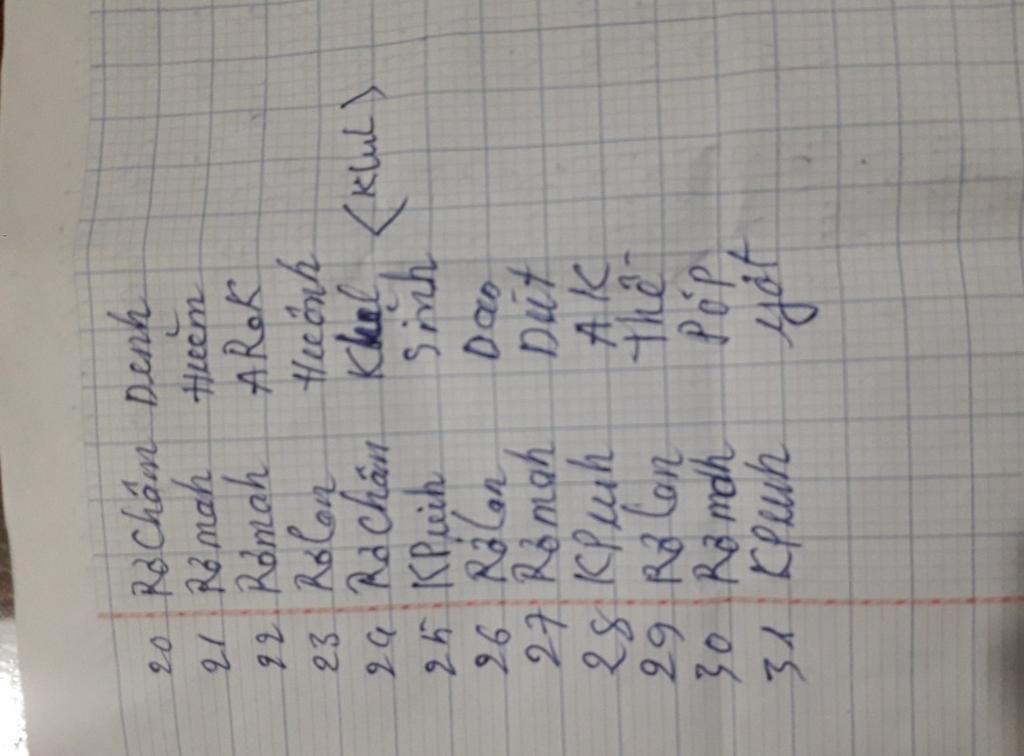 20 Rơ Châm Denh
21 Rơ mah Huêm
22 Rơ mah ARoK
23 Rơ Lan Huônh
24 Rơ Châm Khul <Kul>
25 KPuih Sinh
26 Rơ Lan Dao
27 Rơ mah Dút
28 KPuih AK
29 Rơ Lan Thê
30 Rơ mah Pốp
31 KPuih yót